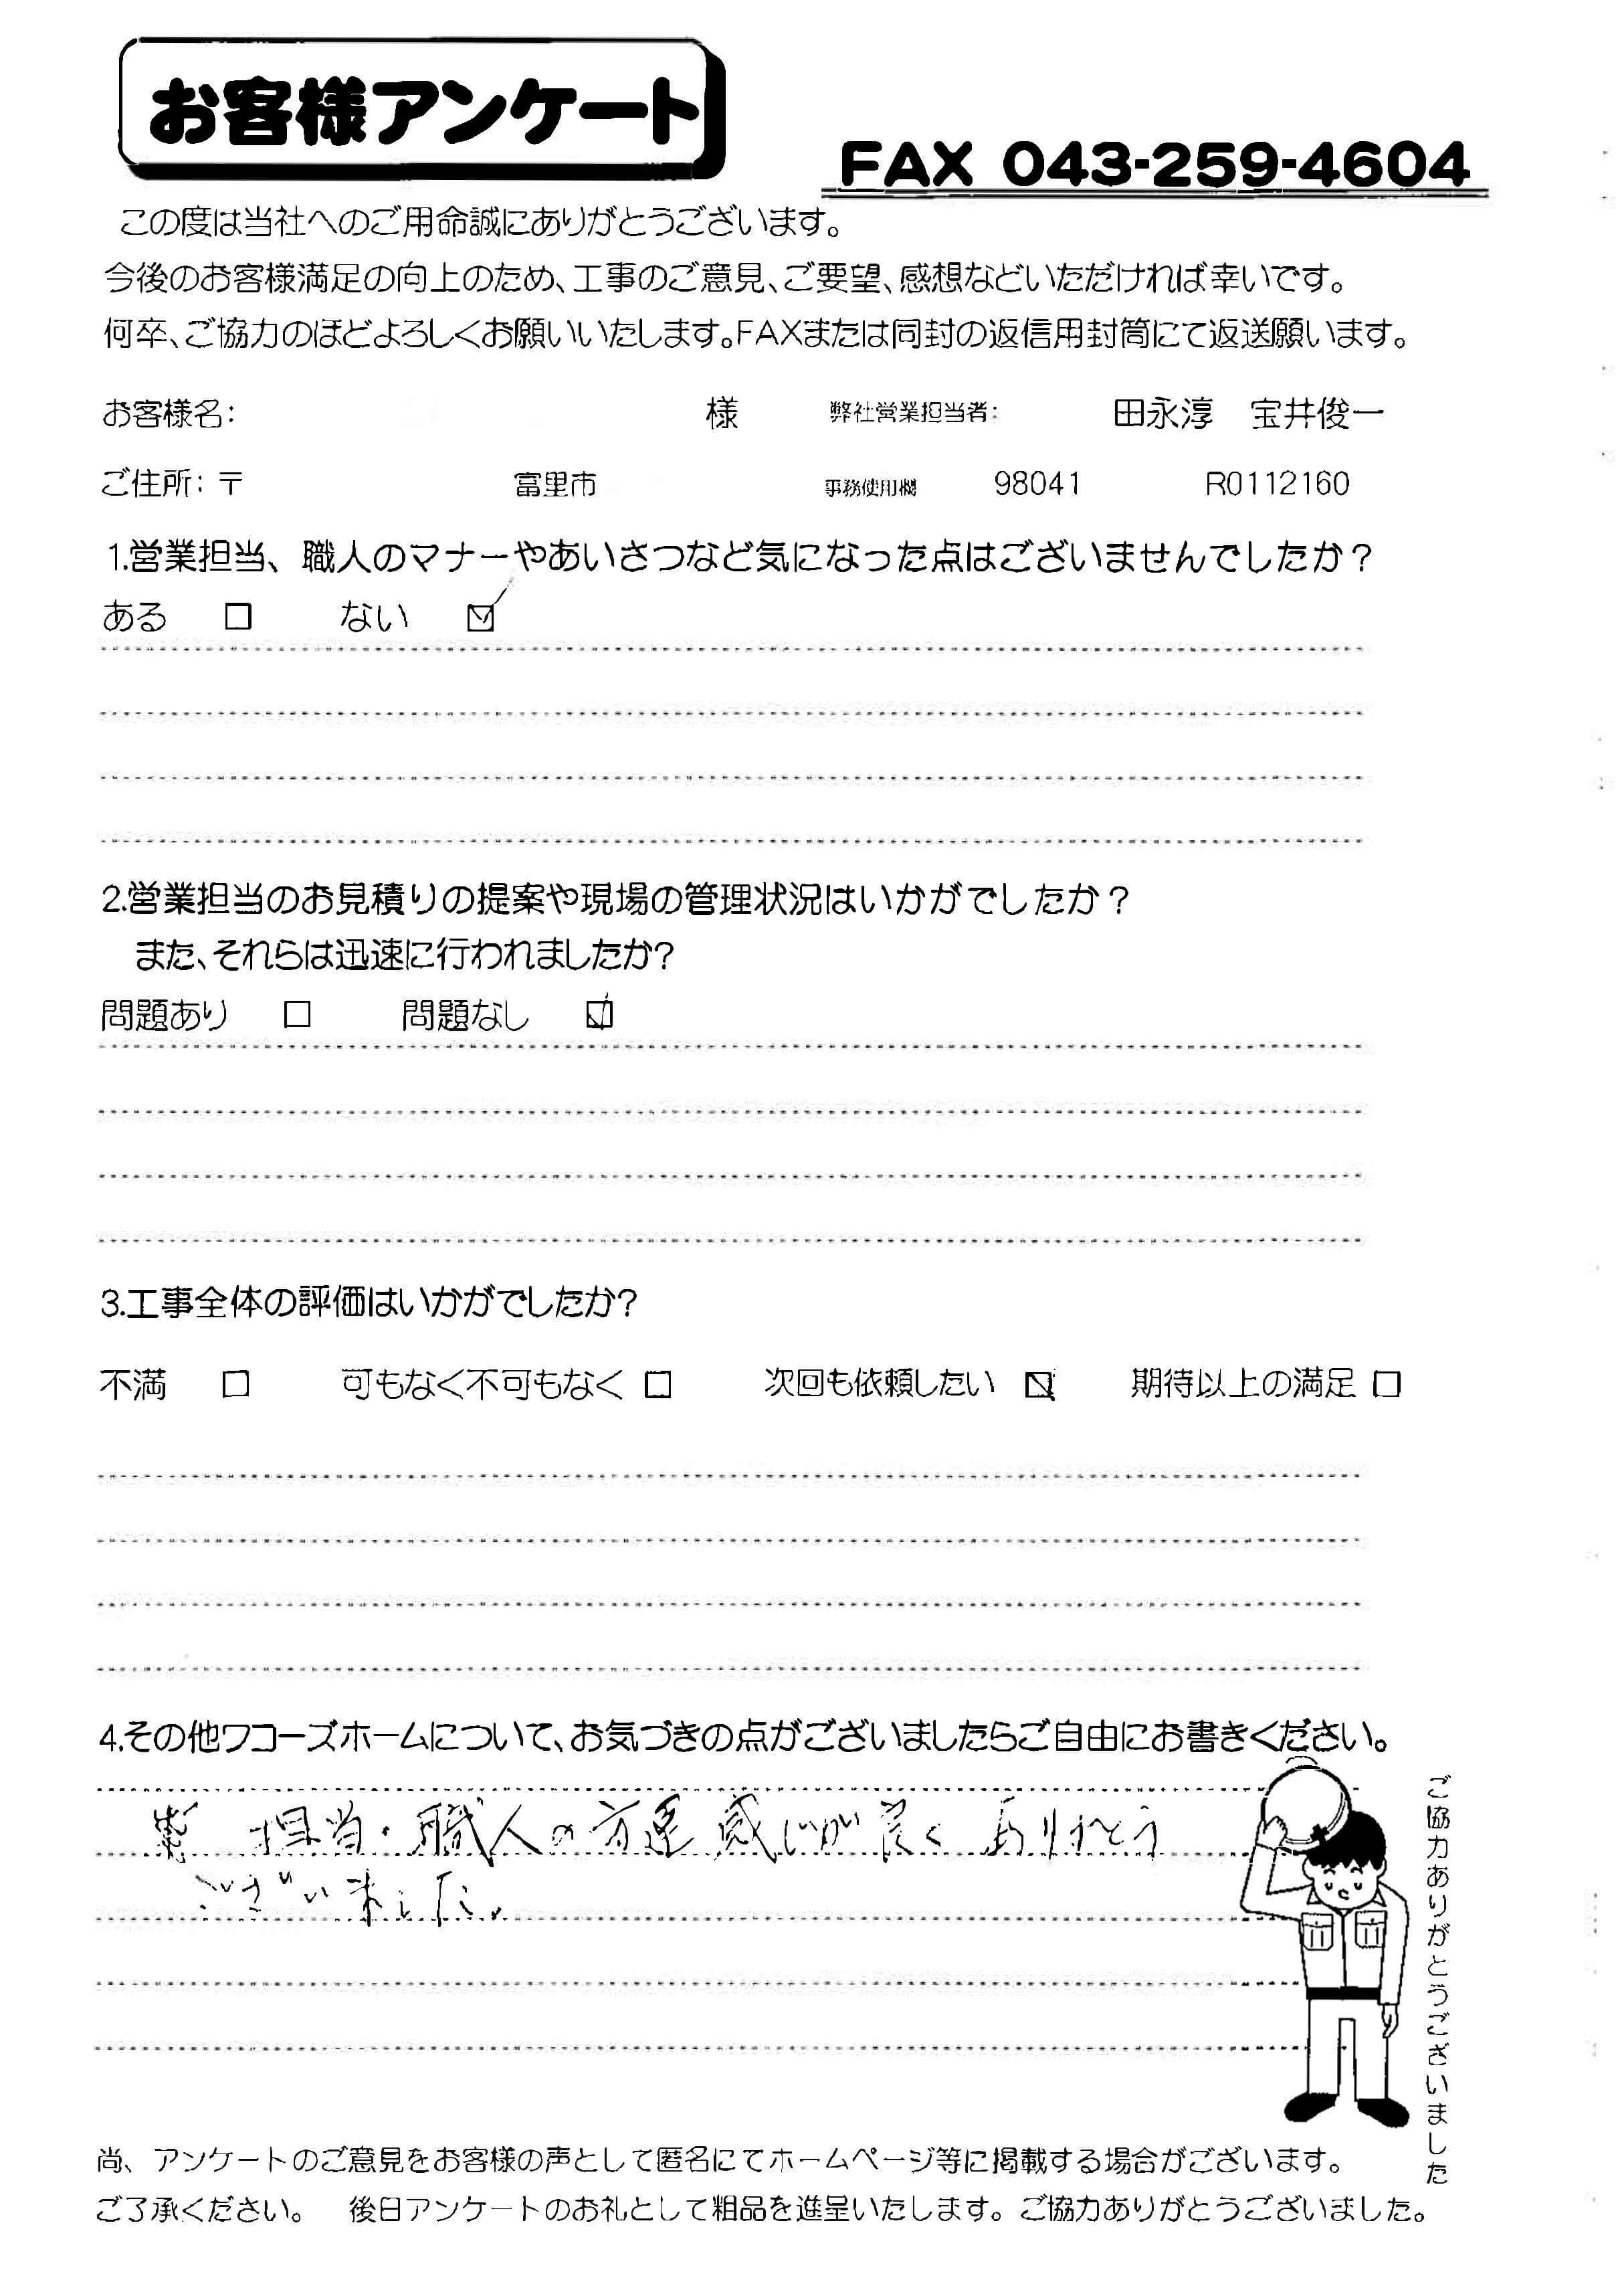 お客様アンケート
FAX 043-259-4604
この度は当社へのご用命誠にありがとうございます。
今後のお客様満足の向上のため、工事のご意見、ご要望、感想などいただければ幸いです。
何卒、ご協力のほどよろしくお願いいたします。FAXまたは同封の返信用封筒にて返送願います。
お客様名: 様 弊社営業担当者: 田永淳 宝井俊一
ご住所: 〒 富里市 事務使用欄 98041 R0112160
1.営業担当、職人のマナーやあいさつなど気になった点はございませんでしたか?
ある □ ない ☑
2.営業担当のお見積りの提案や現場の管理状況はいかがでしたか?
また、それらは迅速に行われましたか?
問題あり □ 問題なし ☑
3.工事全体の評価はいかがでしたか?
不満 □ 可もなく不可もなく □ 次回も依頼したい ☑ 期待以上の満足 □
4.その他ワコーズホームについて、お気づきの点がございましたらご自由にお書きください。
担当・職人の方達感じが良く ありがとう
ございました。
ご協力ありがとうございました
尚、アンケートのご意見をお客様の声として匿名にてホームページ等に掲載する場合がございます。
ご了承ください。 後日アンケートのお礼として粗品を進呈いたします。ご協力ありがとうございました。